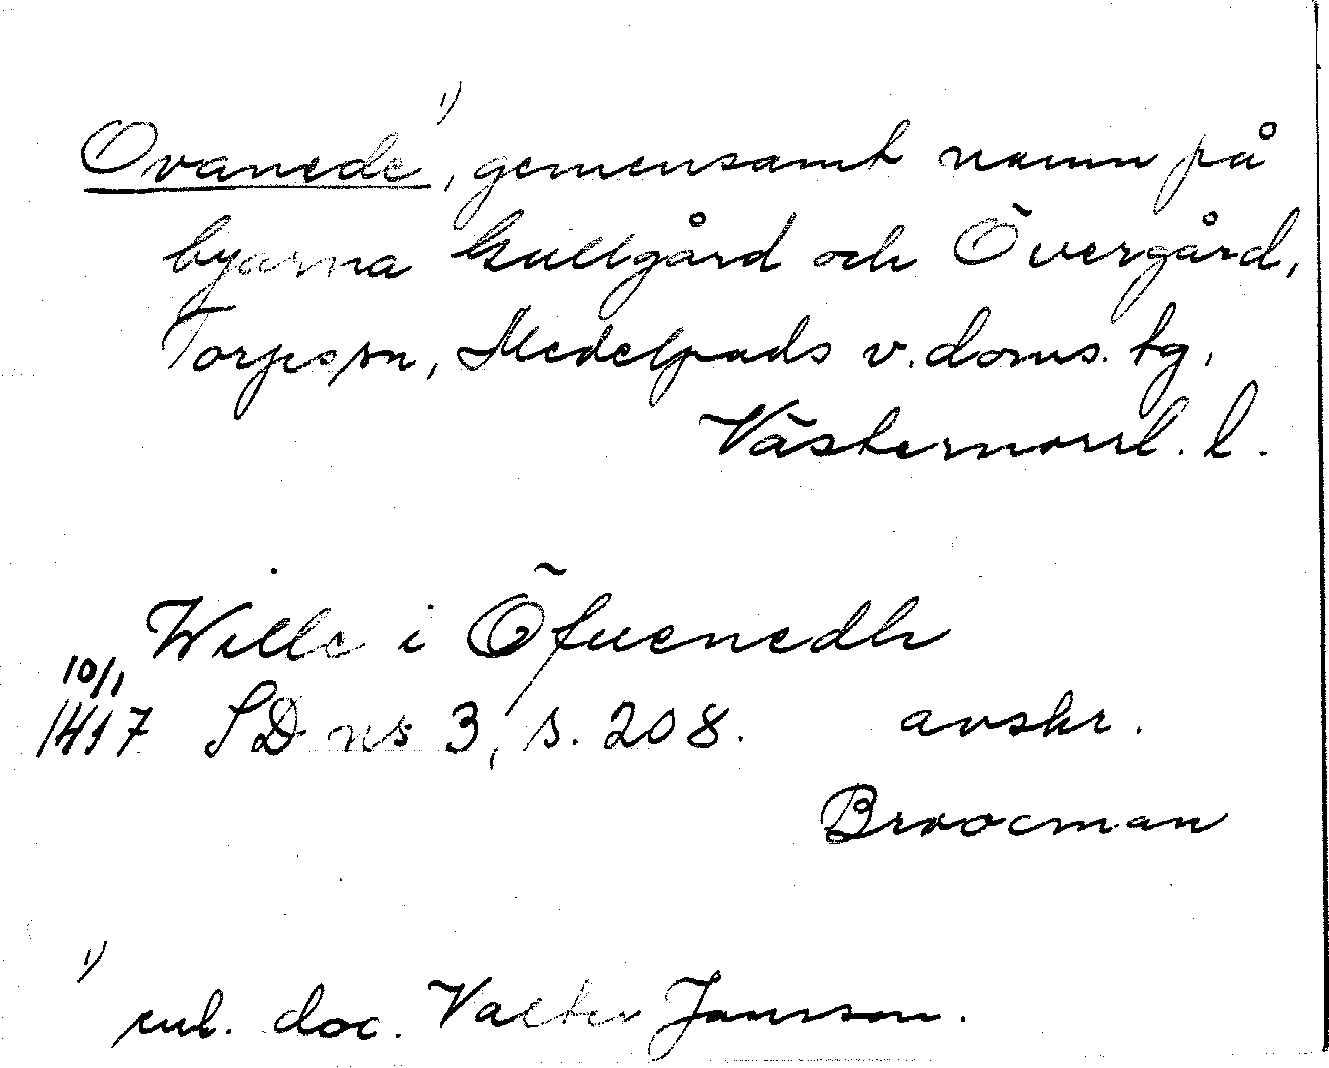 Ovanede¹⁾, gemensamt namn på
byarna Gullgård och Övergård,
Torps sn, Medelpads v. doms. tg,
Västernorrl. l.
Wille i Öfuenedh
10/1
1417 SD ns 3, s. 208. avskr.
Broocman
1)
enl. doc. Valter Jansson.